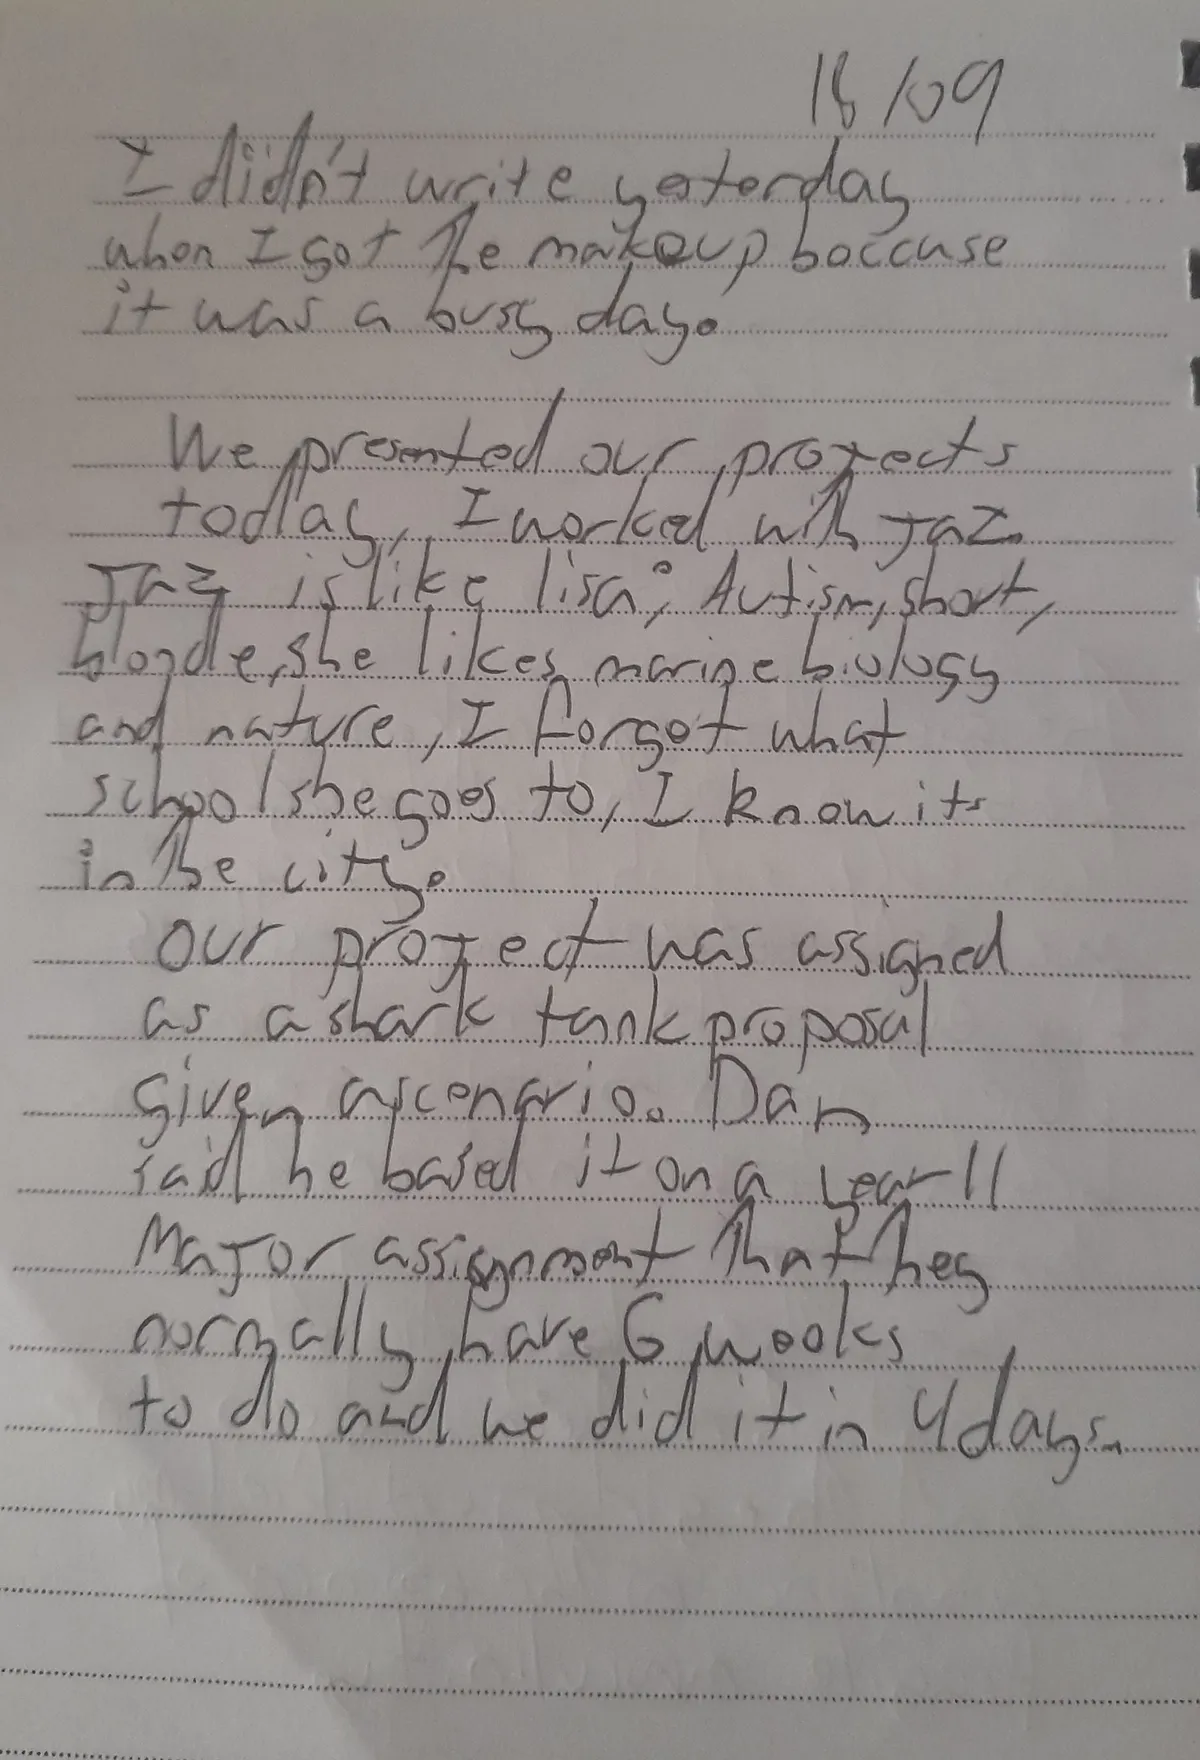 18/09
I didn't write yesterday
when I got the makeup because
it was a busy day.
We presented our projects
today, I worked with Jaz.
Jaz is like lisa; Autism, short,
blonde, she likes marine biology
and nature, I forgot what
school she goes to, I know its
in the city.
Our project was assigned
as a shark tank proposal
given a scenario. Dan
said he based it on a year 11
Major assignment that they
normally have 6 weeks
to do and we did it in 4 days.